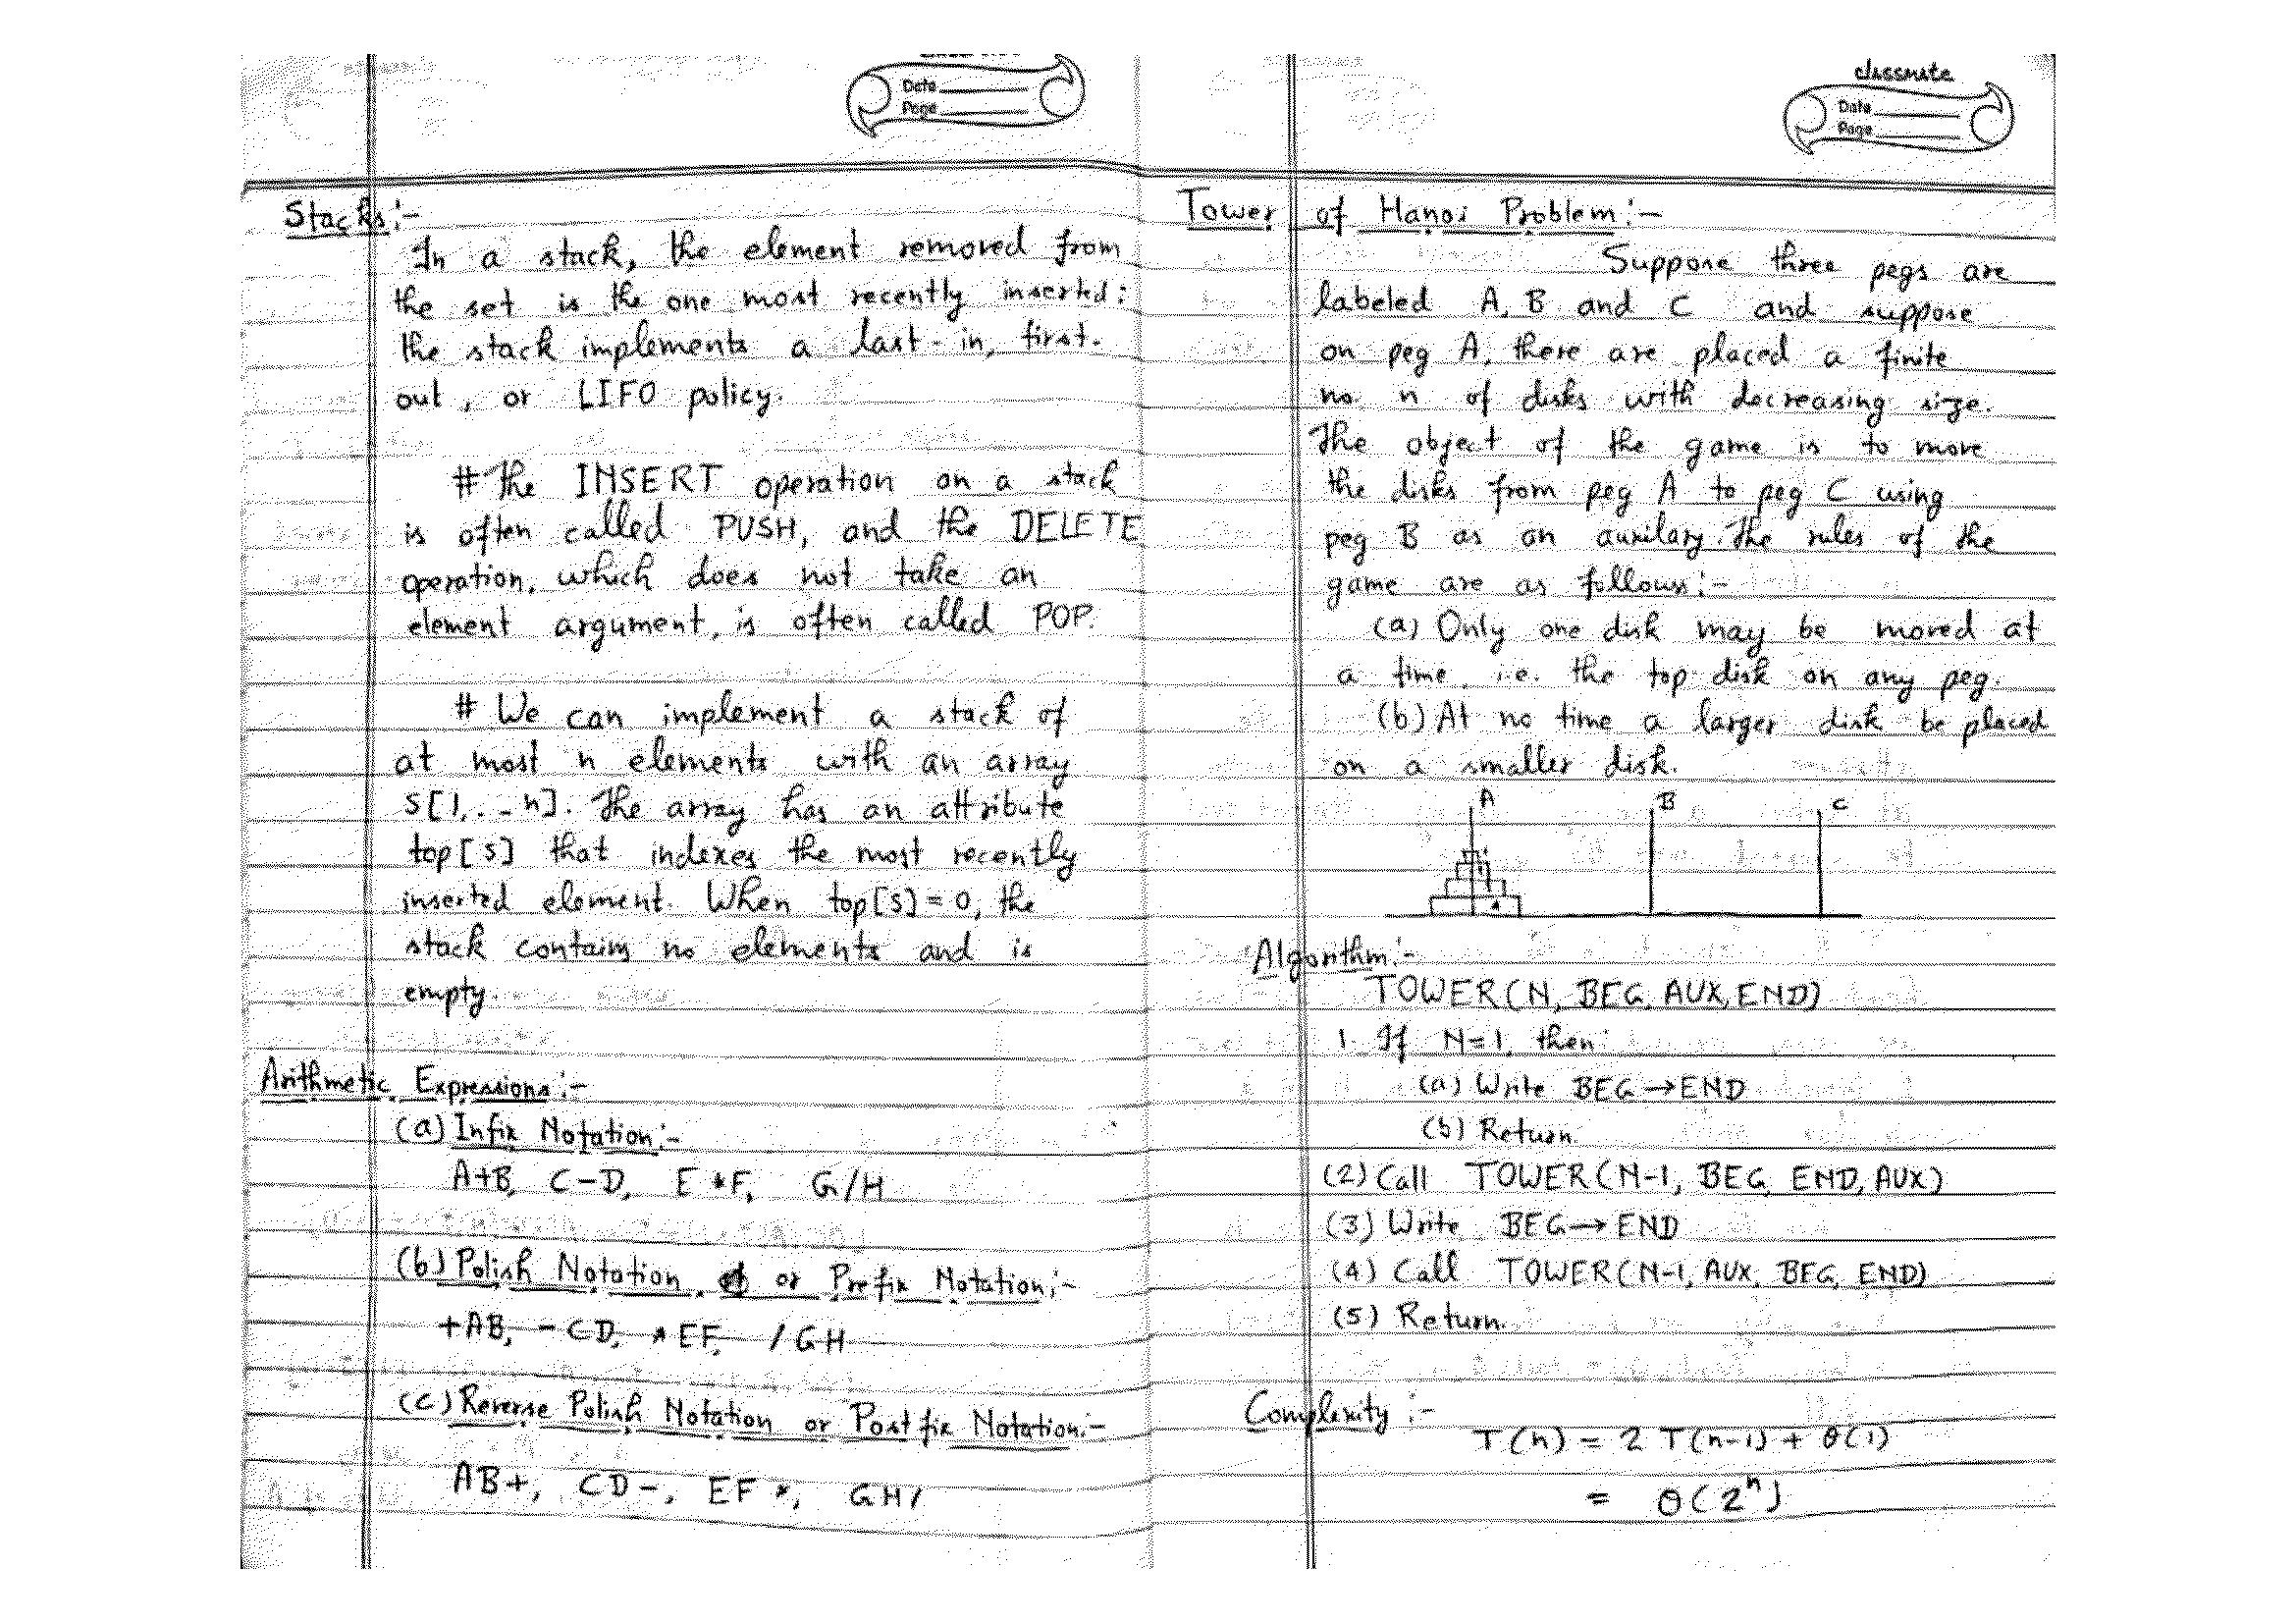 Date
Page
Stacks:-
In a stack, the element removed from
the set is the one most recently inserted:
the stack implements a last-in, first-
out, or LIFO policy.
# The INSERT operation on a stack
is often called PUSH, and the DELETE
operation, which does not take an
element argument, is often called POP.
# We can implement a stack of
at most n elements with an array
S[1,..n]. The array has an attribute
top[S] that indexes the most recently
inserted element. When top[S]=0, the
stack contains no elements and is
empty.
Arithmetic Expressions:-
(a) Infix Notation:-
A+B, C-D, E*F, G/H
(b) Polish Notation or Prefix Notation:-
+AB, -CD, *EF, /GH
(c) Reverse Polish Notation or Postfix Notation:-
AB+, CD-, EF*, GH/
classmate
Date
Page
Tower of Hanoi Problem:-
Suppose three pegs are
labeled A, B and C and suppose
on peg A, there are placed a finite
no. n of disks with decreasing size.
The object of the game is to move
the disks from peg A to peg C using
peg B as an auxilary. The rules of the
game are as follows:-
(a) Only one disk may be moved at
a time, i.e. the top disk on any peg.
(b) At no time a larger disk be placed
on a smaller disk.
A B C
Algorithm:-
TOWER(N, BEG, AUX, END)
1. If N=1, then:
(a) Write BEG→END
(b) Return.
(2) Call TOWER(N-1, BEG, END, AUX)
(3) Write BEG→END
(4) Call TOWER(N-1, AUX, BEG, END)
(5) Return.
Complexity:-
T(n) = 2 T(n-1) + θ(1)
= θ(2ⁿ)